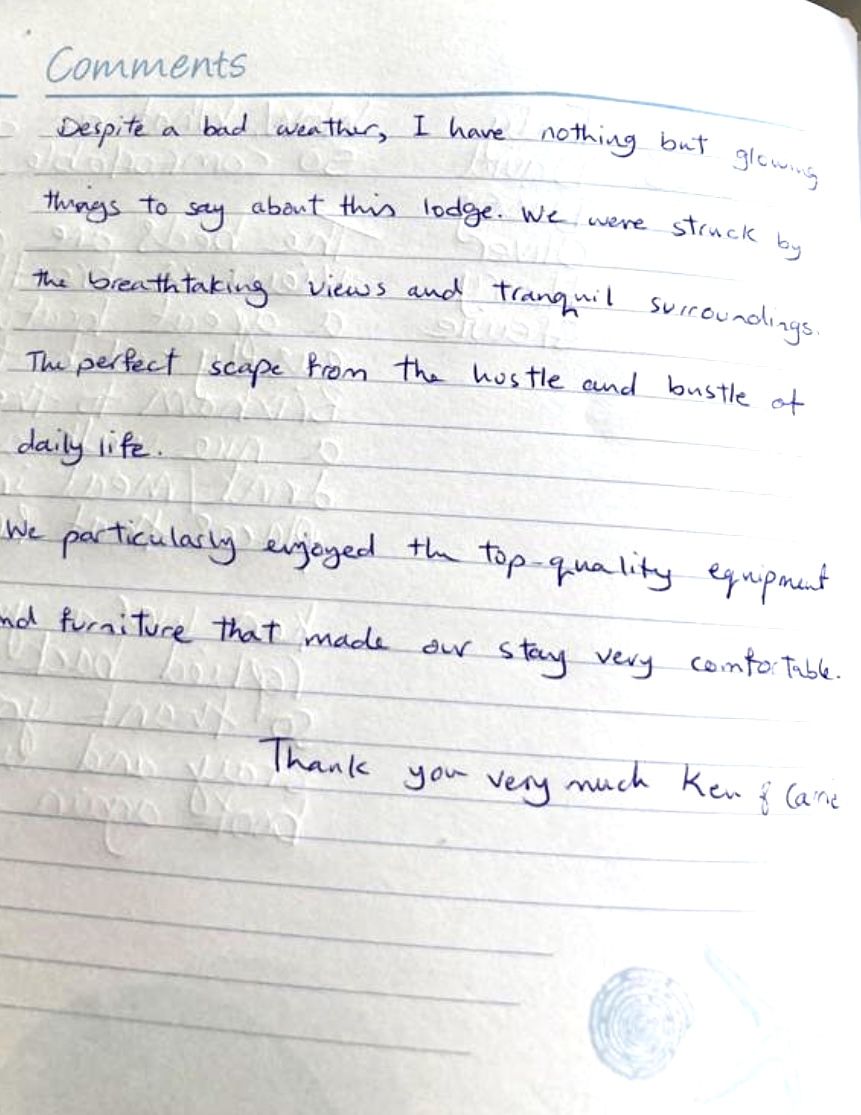 Comments
Despite a bad weather, I have nothing but glowing
things to say about this lodge. We were struck by
the breathtaking views and tranquil surroundings.
The perfect scape from the hustle and bustle of
daily life.
We particularly enjoyed the top-quality equipment
nd furniture that made our stay very comfortable.
Thank you very much Ken &